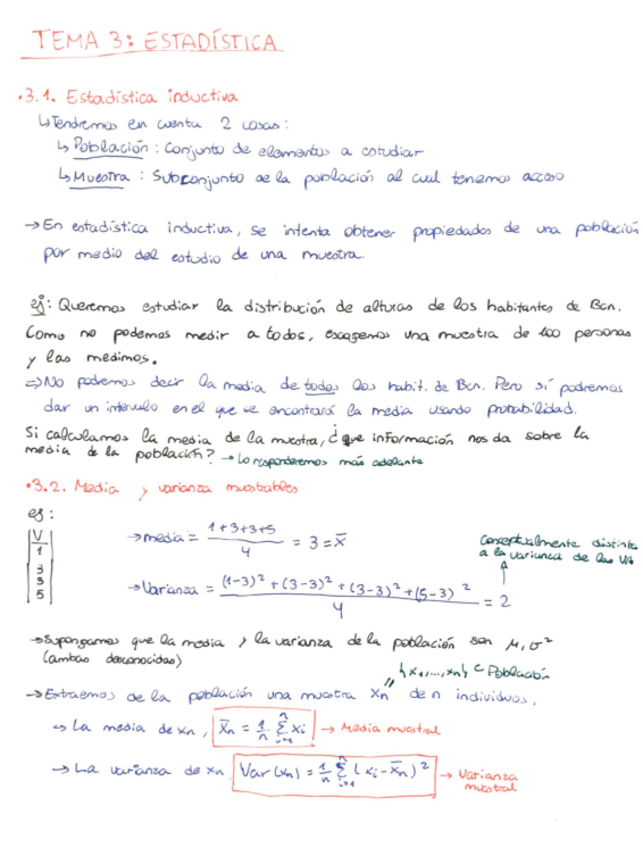 TEMA 3: ESTADÍSTICA
·3.1. Estadística inductiva
↳Tendremos en cuenta 2 cosas:
↳ Población: Conjunto de elementos a estudiar
↳ Muestra : Subconjunto de la población al cual tenemos acceso
→En estadística inductiva, se intenta obtener propiedades de una población
por medio del estudio de una muestra.
ej: Queremos estudiar la distribución de alturas de los habitantes de Bcn.
Como no podemos medir a todos, escogemos una muestra de 100 personas
y las medimos.
⇒No podremos decir la media de todos los habit. de Bcn. Pero sí podremos
dar un intervalo en el que se encontrará la media usando probabilidad.
Si calculamos la media de la muestra, ¿que información nos da sobre la
media de la población? → Lo responderemos más adelante
·3.2. Media y varianza muestrables
ej:
V
1
3
3
5
→media = (1+3+3+5)/4 = 3 = x̄
Conceptualmente distinta
a la varianza de las VA
→Varianza = ((1-3)² + (3-3)² + (3-3)² + (5-3)²)/4 = 2
→Supongamos que la media y la varianza de la población son μ, σ²
(ambas desconocidas)
{x₁,...,xₙ} ⊂ Población
→Extraemos de la población una muestra Xn de n individuos.
⇒ La media de xn, x̄n = 1/n Σⁿᵢ₌₁ xi → Media muestral
→ La varianza de xn Var(xn) = 1/n Σⁿᵢ₌₁ (xi - x̄n)² → Varianza
muestral